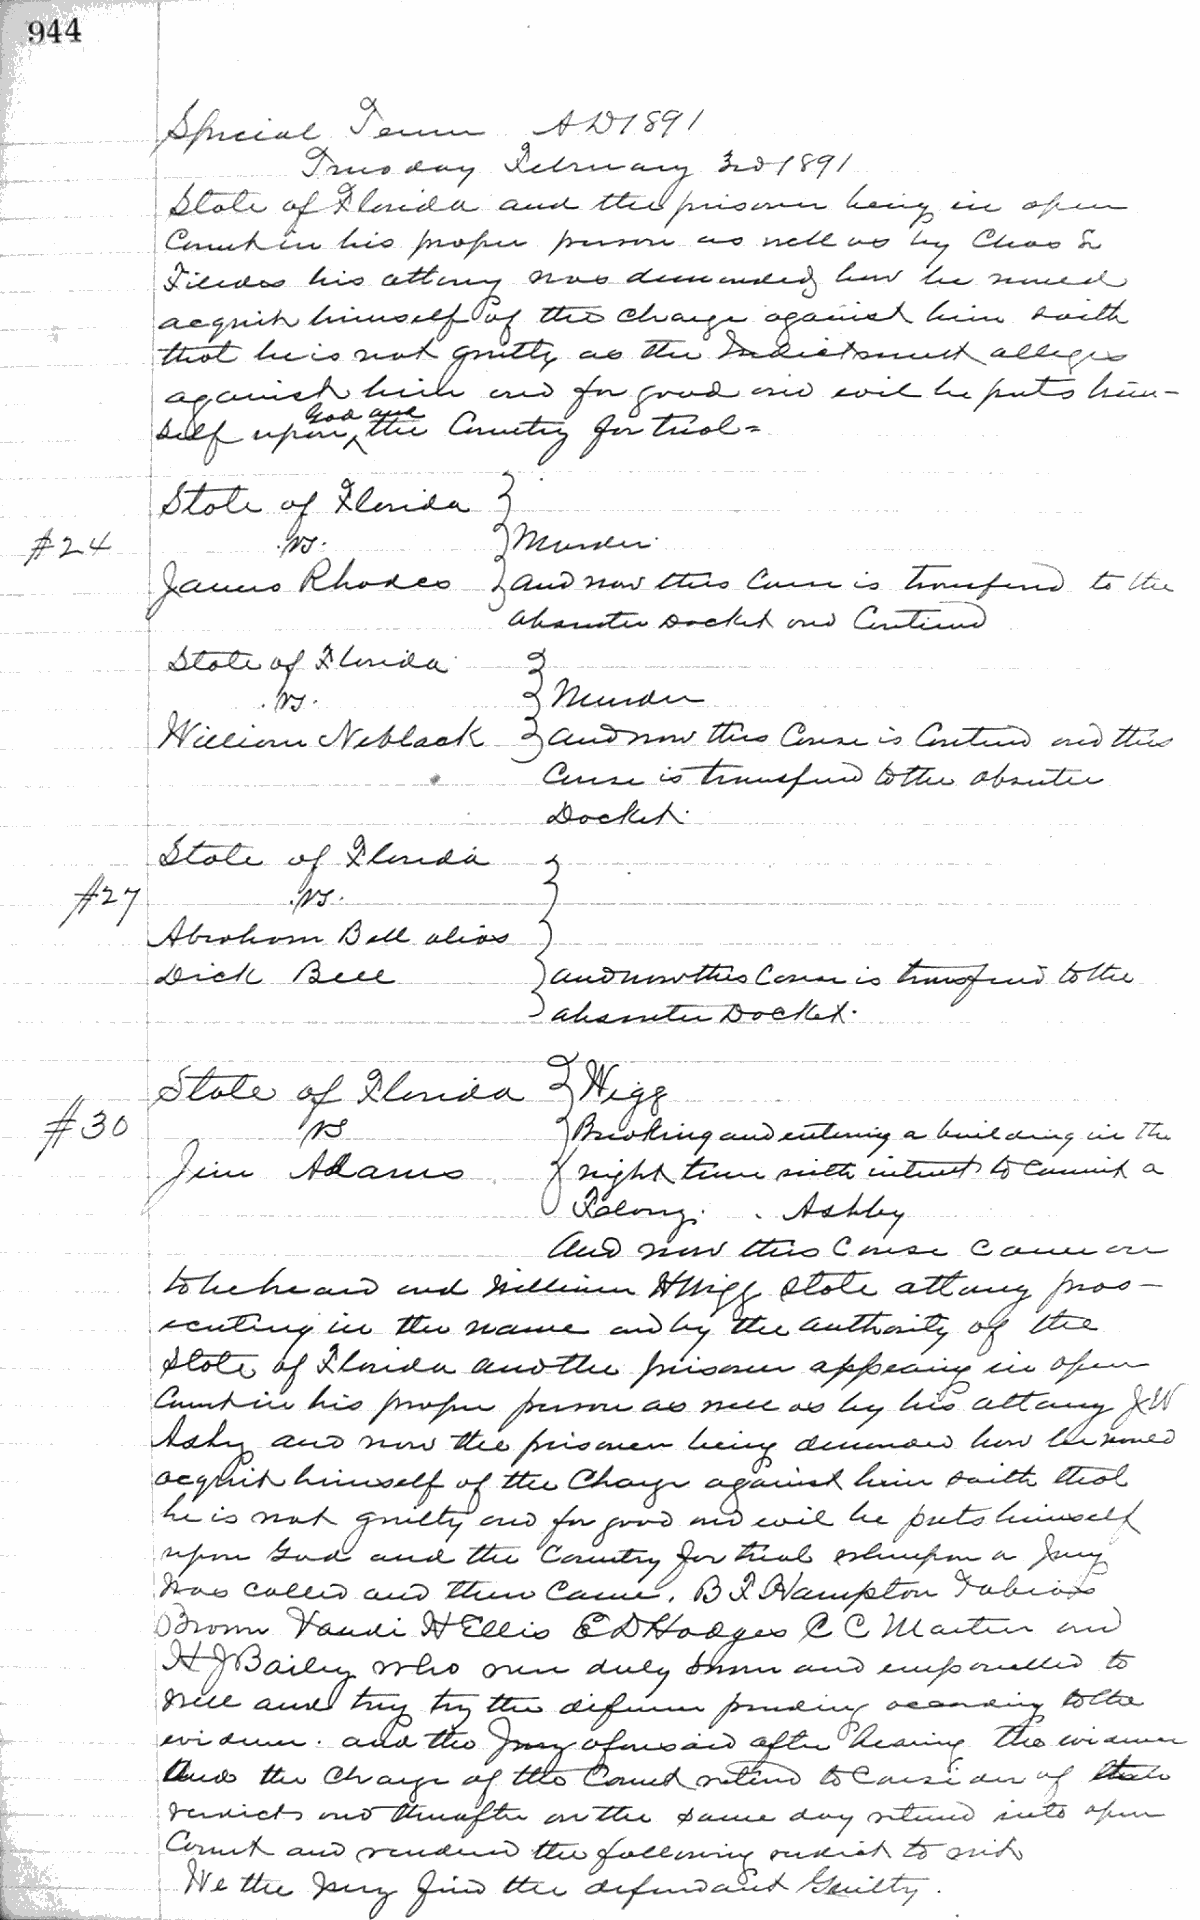 944
Special Term AD 1891
Tuesday February 3rd 1891
State of Florida and the prisoner being in open
Court in his proper person as well as by Chas L
Fildes his attorney was demanded how he would
acquit himself of the charge against him saith
that he is not guilty as the Indictment alleges
against him and for good and evil he puts him-
self upon God and the Country for trial =
State of Florida
#24 vs. Murder
James Rhodes and now this Cause is transferd to the
absentee Docket and Continued
State of Florida
vs. Murder
William Neblack and now this Cause is Contind and this
Cause is transferd to the absentee
Docket.
State of Florida
#27 vs.
Abraham Bell alias
Dick Bell and now this Cause is transferd to the
absentee Docket.
State of Florida Wigg
#30 vs Breaking and entering a building in the
Jim Adams night time with intent to Commit a
Felony. Ashby
And now this Cause came on
to be heard and William H Wigg State attorny pros-
ecuting in the name and by the authority of the
State of Florida and the prisoner appearing in open
Court in his proper person as well as by his attorny J W
Ashby and now the prisoner being demanded how he would
acquit himself of the Charge against him saith that
he is not guilty and for good and evil he puts himself
upon God and the Country for trial whereupon a Jury
was called and there Came. B F Hampton Tobias
Brown Vandi H Ellis E D Hodges C C Martin and
H J Bailey who were duly sworn and empanelled to
well and truly try the difference pending according to the
evidence. and the Jury aforesaid after hearing the evidence
and the Charge of the Court retired to Consider of their
verdict and thereafter on the same day returned into open
Court and rendered the following verdict to wit
We the Jury find the defendant Guilty.